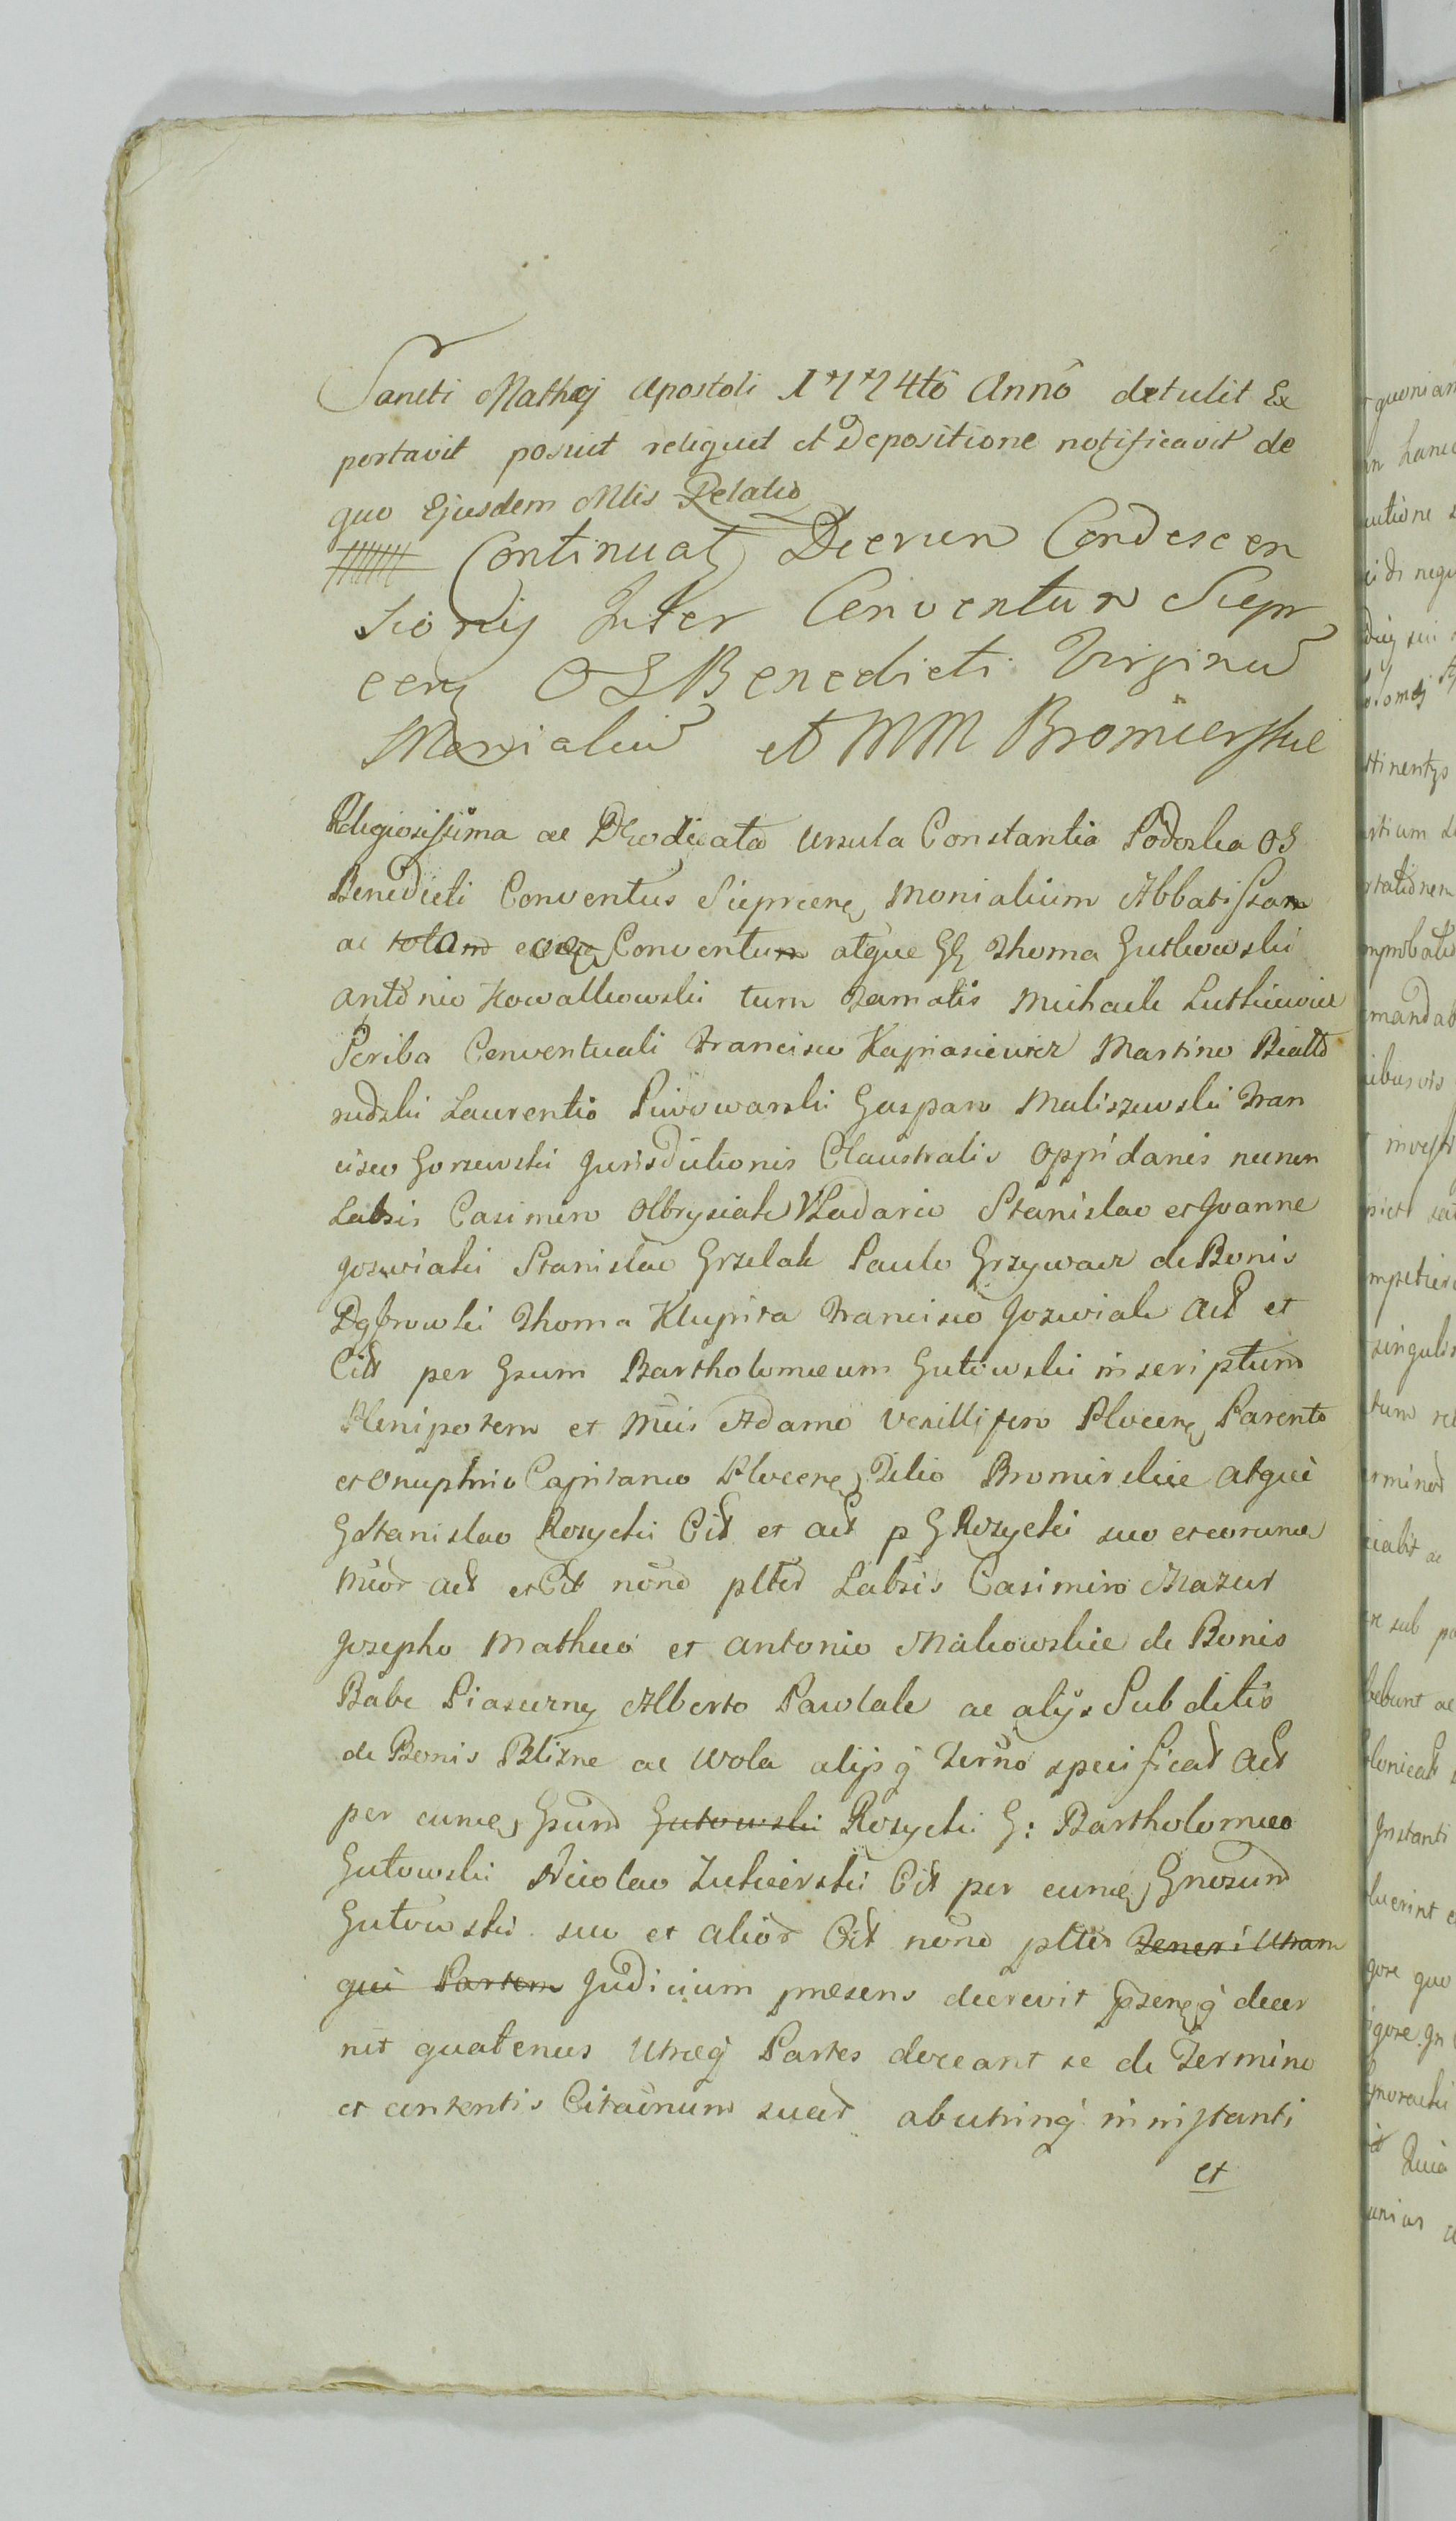 Sancti Mathæj Apostoli 1774tō Annō detulit Ex
portavit posuit reliquit et Depositione notificavit de
quo Ejusdem Mlis Relatio
Continuat Decrun Condescen
sionis Inter Conventum Sierp
cen OS Benedicti Virginū
Monialiū et MM Bromierskie
Religiosissima ac Deodicata Ursula Constantia Podoska OS
Benedicti Conventus Sierpcen Monialium Abbatissam
ac totam eoꝙ Conventum atque GG Thoma Gutkowski
Antonio Kowalkowski tum Famatis Michaele Lutkiewicz
Scriba Conventuali Francisco Kapiasiewicz Martino Biało
rudzki Laurentio Piwowarski Gaspare Maliszewski Fran
cisco Gorzewski Jurisdictionis Claustralis Oppidanis necnon
Labsis Casimiro Olbrysiak Vladario Stanislao et Joanne
Jozwiaki Stanislao Grzelak Paulo Grzywacz de Bonis
Dąbrowki Thoma Klupita Francisco Jozwiak Act et
Citt per Gsum Bartholomæum Gutowski inscriptum
Plenipotem et Mcis Adamo Vexillifero Plocen Parente
et Onuphrio Capitaneo Plocen Filio Bromirskie atque
G Stanislao Rosycki Citt et act p G Rosycki suo et eorum
Mcor act et Cit nōne plted Labsis Casimiro Mazur
Josepho Matheo et Antonio Makowskie de Bonis
Babe Piaseczny Alberto Pawlak ac alÿs Subditis
de Bonis Blizne ac Wola alijsq Termō specificat Act
per eume Gsum Gutowski Rosycki G: Bartholomæo
Gutowski Nicolao Zukierski Cit per eume Gnosum
Gutowski suo et alior Cit nōne plted Teneri Utram
que Partem Judicium præsens decrevit pseneq decer
nit quatenus Utræq Partes doceant se de Termino
et contentis Citaonum suar ab utrinq in instanti
et